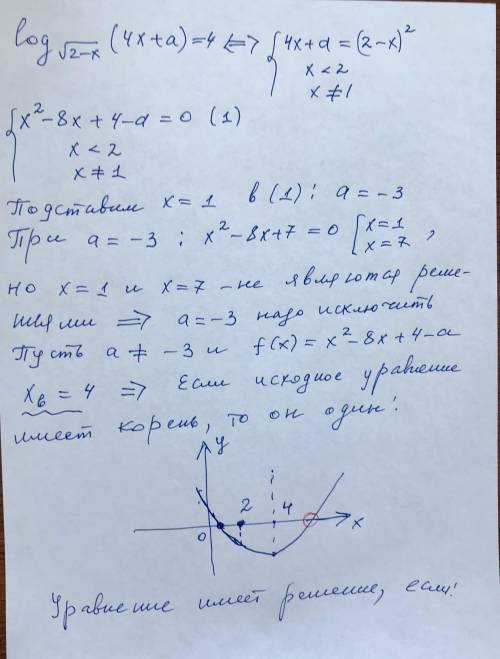 log_{√(2-x)} (4x+a)=4 <=> { 4x+a = (2-x)²
x < 2
x ≠ 1
{ x² - 8x + 4 - a = 0 (1)
x < 2
x ≠ 1
Подставим x = 1 в (1): a = -3
При a = -3 : x² - 8x + 7 = 0 [ x=1
x=7 ,
но x = 1 и x = 7 - не являются реше-
ниями => a = -3 надо исключить
Пусть a ≠ -3 и f(x) = x² - 8x + 4 - a
x_в = 4 => Если исходное уравнение
имеет корень, то он один!
y
2
4
0
x
Уравнение имеет решение, если: